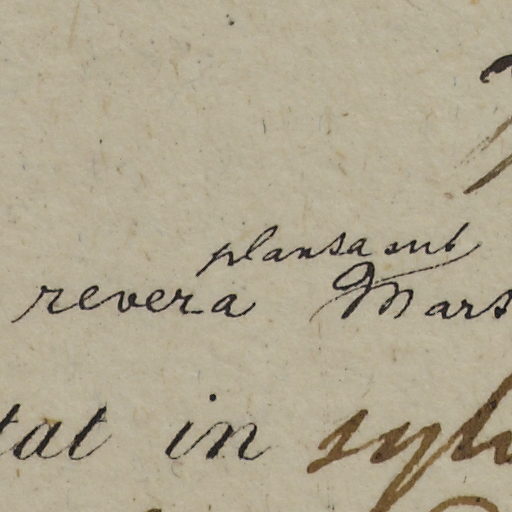 planta sub
revera Mars
tat in sylv